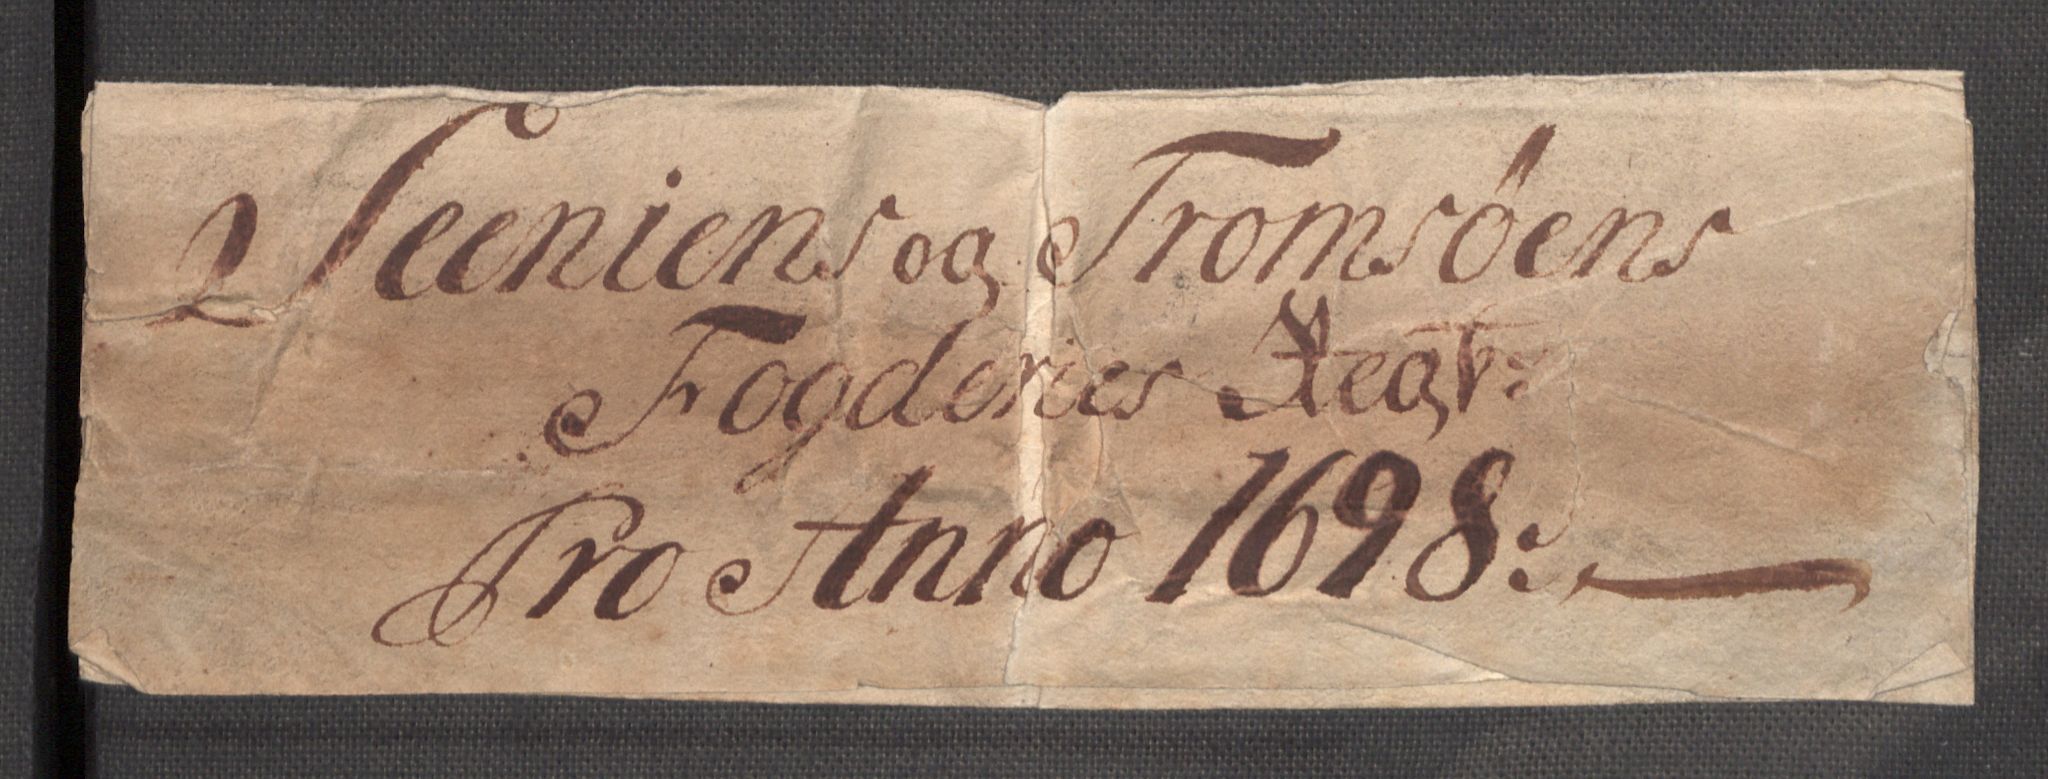 Seeniens og Tromsöens
Fogderies Regb:
Pro Anno 1698: